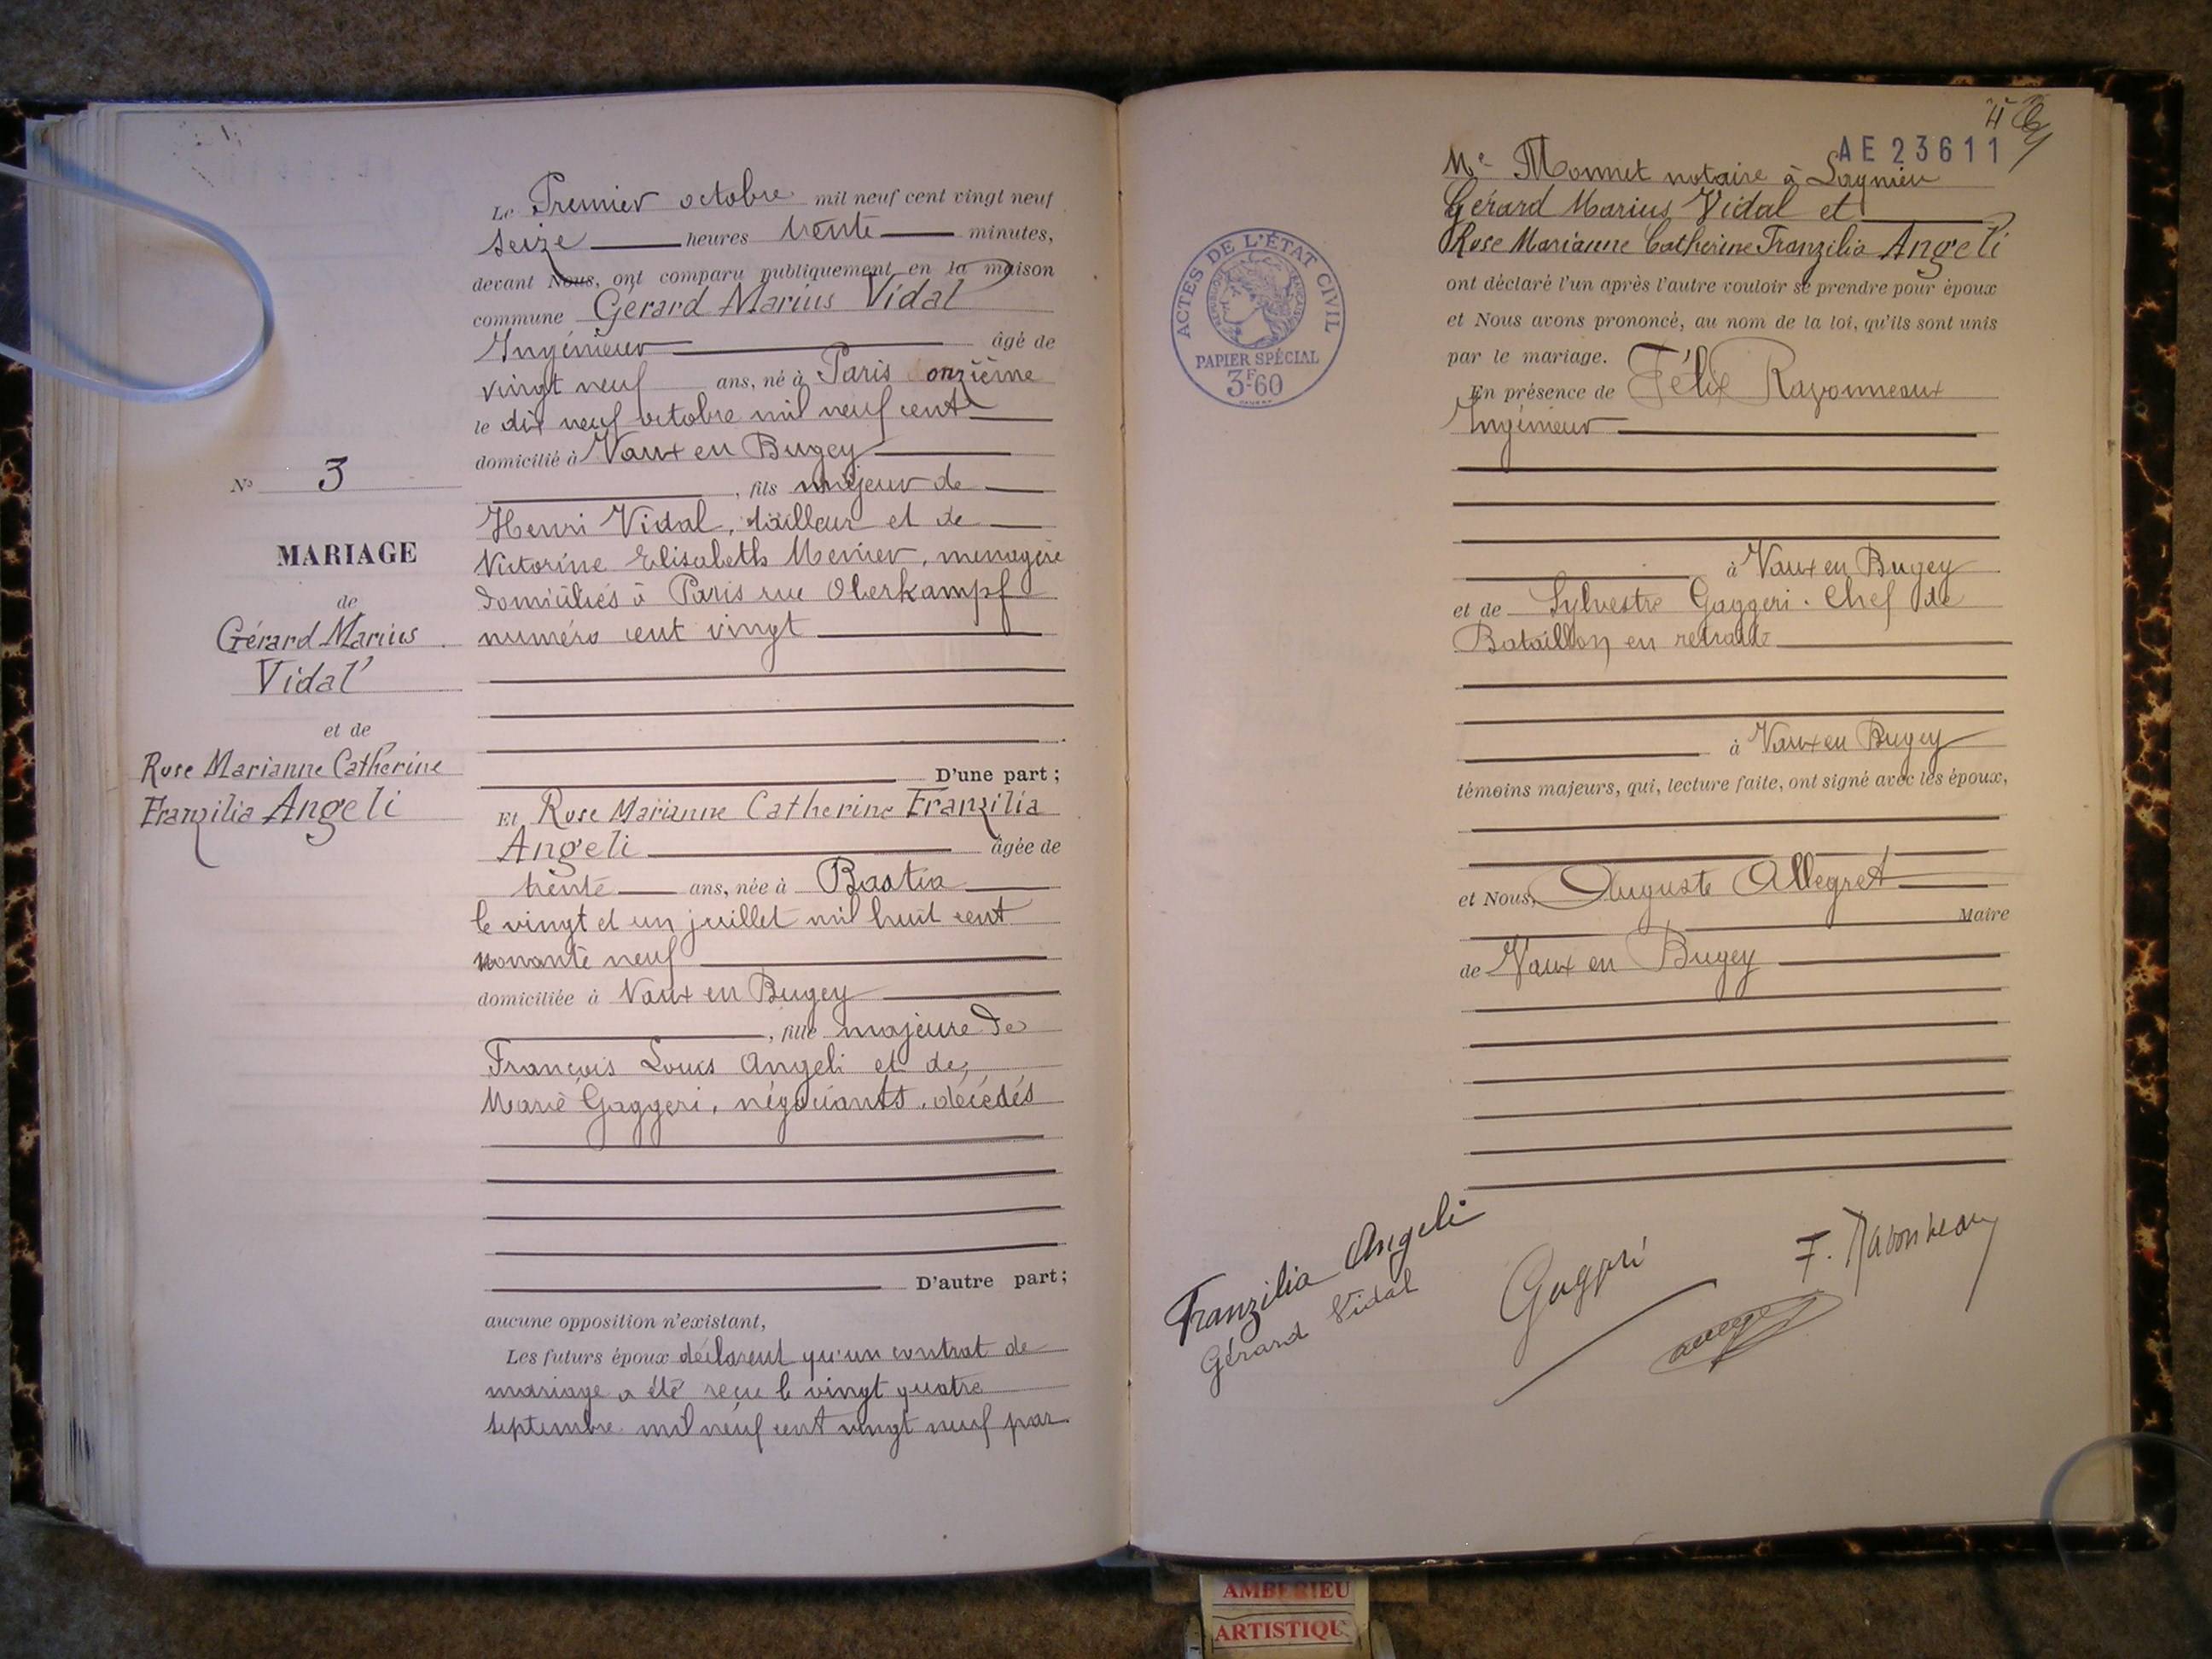 Le Premier octobre mil neuf cent vingt neuf
seize heures trente minutes,
devant Nous, ont comparu publiquement en la maison
commune Gérard Marius Vidal
Ingénieur âgé de
vingt neuf ans, né à Paris onzième
le dix neuf octobre mil neuf cent
domicilié à Vaux en Bugey
, fils majeur de
Henri Vidal, tailleur et de
Victorine Elisabeth menagère
domiciliés à Paris rue Oberkampf
numéro cent vingt
D'une part ;
N° 3
MARIAGE
de
Gérard Marius
Vidal
et de
Rose Marianne Catherine
Franzilia Angeli
Et Rose Marianne Catherine Franzilia
Angeli âgée de
trente ans, née à Bastia
le vingt et un juillet mil huit cent
nonante neuf
domiciliée à Vaux en Bugey
, fille majeure de
François Louis Angeli et de
Marie Gaggeri, négociants, décédés
D'autre part ;
aucune opposition n'existant,
Les futurs époux déclarent qu'un contrat de
mariage a été reçu le vingt quatre
septembre mil neuf cent vingt neuf par
AE 23611
Me Monnet notaire à Lagnieu
Gérard Marius Vidal et
Rose Marianne Catherine Franzilia Angeli
ont déclaré l'un après l'autre vouloir se prendre pour époux
et Nous avons prononcé, au nom de la loi, qu'ils sont unis
par le mariage.
En présence de Félix Rayonneaux
Ingénieur
à Vaux en Bugey
et de Sylvestre Gaggeri. Chef de
Bataillon en retraite
à Vaux en Bugey
témoins majeurs, qui, lecture faite, ont signé avec les époux,
et Nous, Auguste Allegret
Maire
de Vaux en Bugey
ACTES DE L'ÉTAT CIVIL
RÉPUBLIQUE FRANÇAISE
PAPIER SPÉCIAL
3F.60
Franzilia Angeli
Gérard Vidal
Gaggeri
AMBERIEU
ARTISTIQU